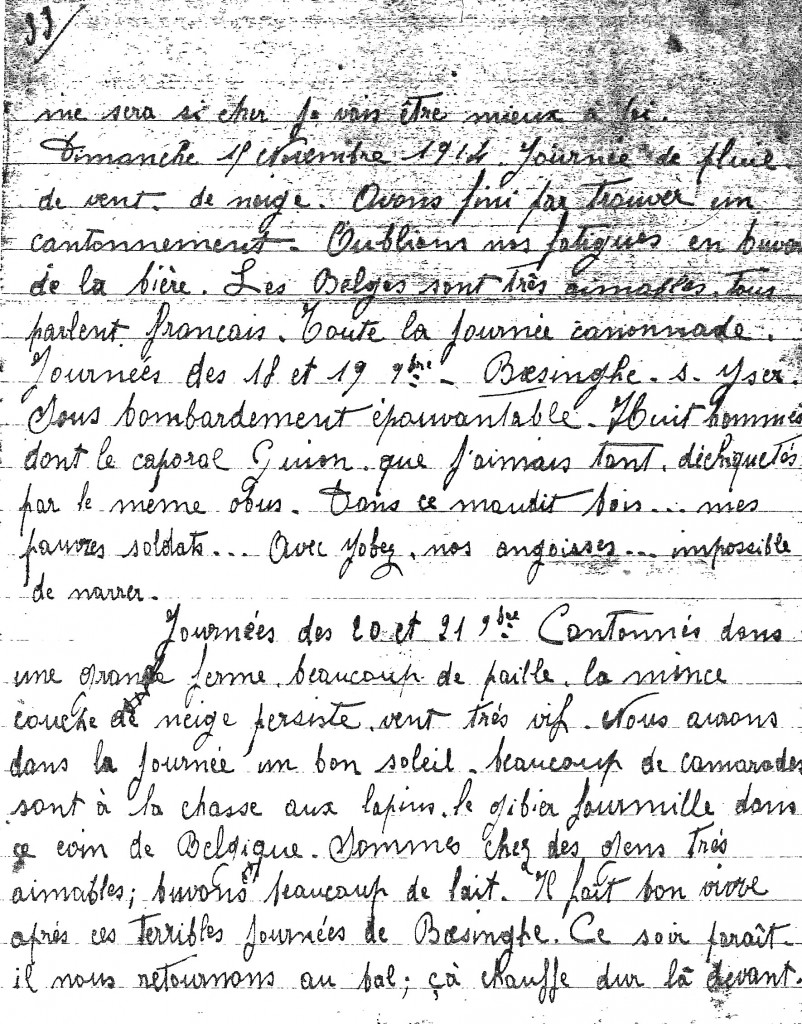 33/
me sera si cher je vais être mieux à lui.
Dimanche 15 Novembre 1914. Journée de pluie
de vent. de neige. Avons fini par trouver un
cantonnement. Oublions nos fatigues en buvan
de la bière. Les Belges sont très aimables. Tous
parlent français. Toute la journée canonnade.
Journées des 18 et 19 9bre - Bœsinghe. s. Yser.
Sous bombardement épouvantable. Huit hommes
dont le caporal Guion. que j'aimais tant. déchiquetés
par le même obus. Dans ce maudit bois... mes
pauvres soldats... Avec Yobez. nos angoisses... impossible
de narrer.
Journées des 20 et 21 9bre Cantonnés dans
une grande ferme. beaucoup de paille. la mince
couche de neige persiste. vent très vif. Nous aurons
dans la journée un bon soleil. beaucoup de camarades
sont à la chasse aux lapins. le gibier fourmille dans
ce coin de Belgique. Sommes chez des gens très
aimables; buvons beaucoup de lait. Il fait bon vivre
après ces terribles journées de Bœsinghe. Ce soir paraît-
il nous retournons au bal; çà chauffe dur là devant.